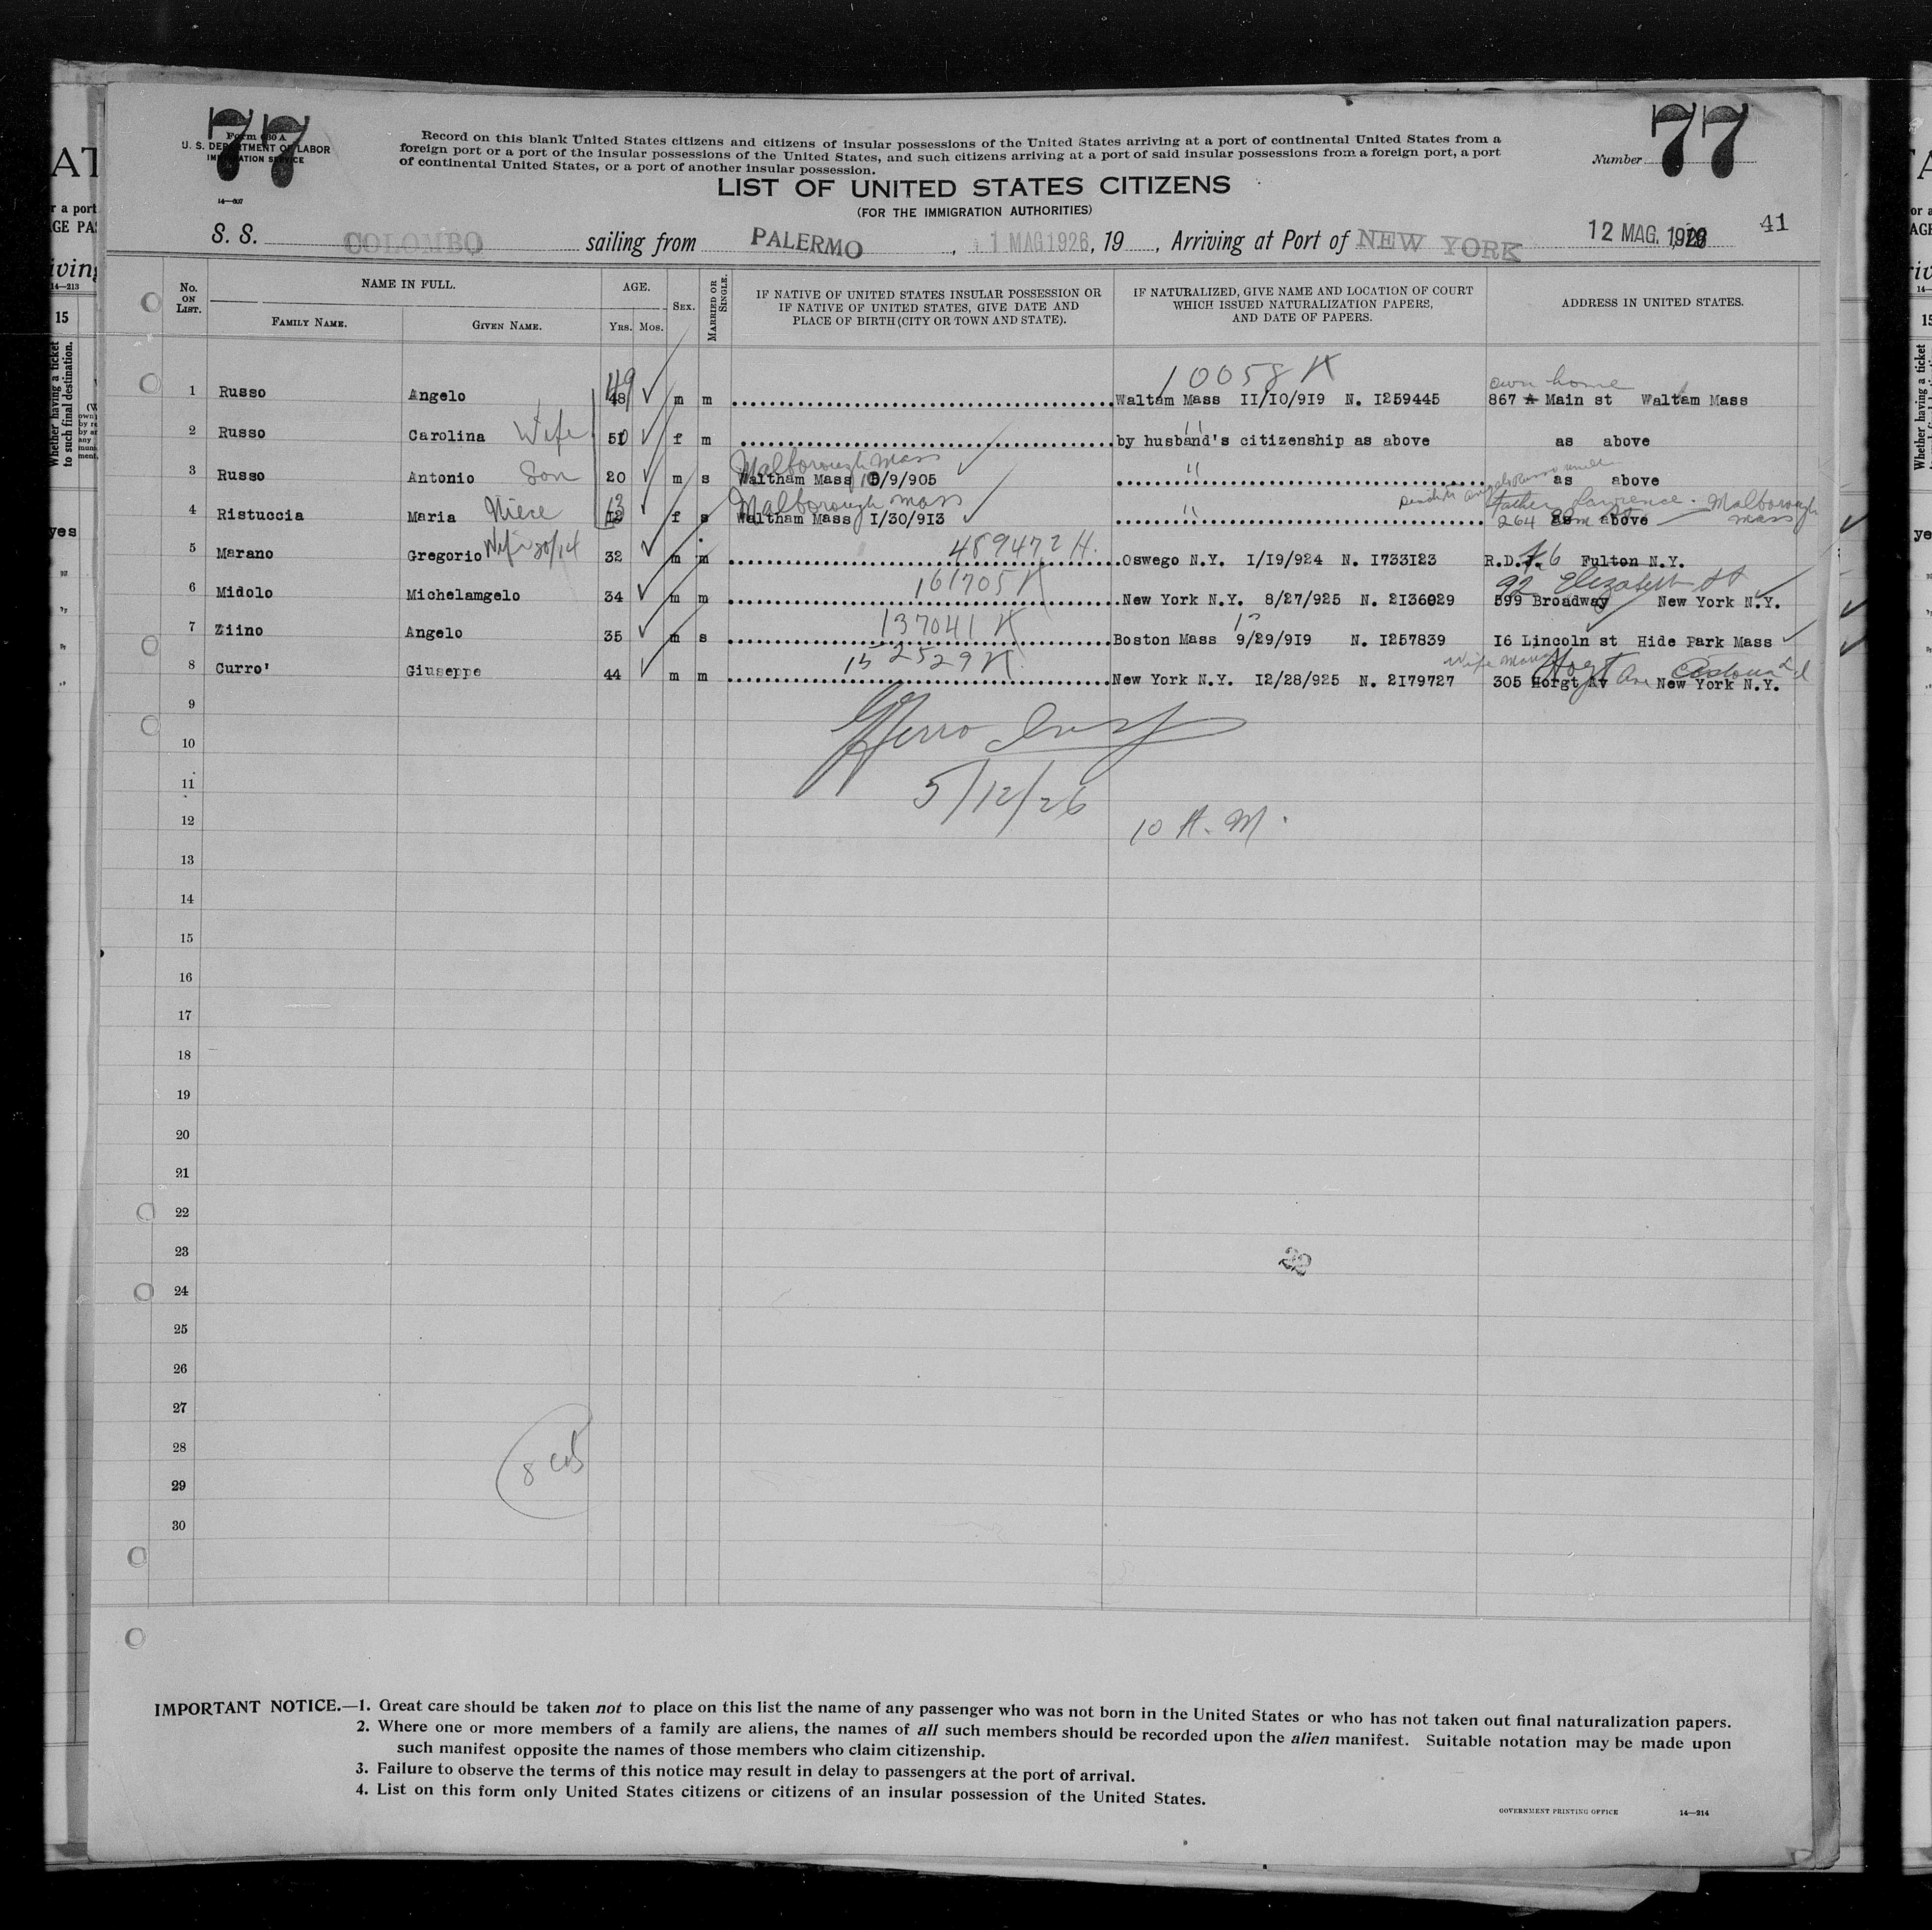 77
77
Form 630 A
U. S. DEPARTMENT OF LABOR
IMMIGRATION SERVICE
14—607
Record on this blank United States citizens and citizens of insular possessions of the United States arriving at a port of continental United States from a
foreign port or a port of the insular possessions of the United States, and such citizens arriving at a port of said insular possessions from a foreign port, a port
of continental United States, or a port of another insular possession.
Number
LIST OF UNITED STATES CITIZENS
(FOR THE IMMIGRATION AUTHORITIES)
S. S. COLOMBO sailing from PALERMO, 1 MAG 1926, 19 , Arriving at Port of NEW YORK 12 MAG. 1926 41
No. ON LIST.
NAME IN FULL.
FAMILY NAME.
GIVEN NAME.
AGE.
YRS. MOS.
SEX.
MARRIED OR SINGLE.
IF NATIVE OF UNITED STATES INSULAR POSSESSION OR
IF NATIVE OF UNITED STATES, GIVE DATE AND
PLACE OF BIRTH (CITY OR TOWN AND STATE).
IF NATURALIZED, GIVE NAME AND LOCATION OF COURT
WHICH ISSUED NATURALIZATION PAPERS,
AND DATE OF PAPERS.
ADDRESS IN UNITED STATES.
10058 K
own home
1 Russo Angelo 48 49 m m Waltam Mass II/IO/9I9 N. I259445 867 A Main st Waltam Mass
2 Russo Carolina Wife 50 f m by husband's citizenship as above as above
Malborough Mass
3 Russo Antonio Son 20 m s Waltham Mass 10/9/905 " as above
Malborough Mass
Father Lawrence. Malborough Mass
4 Ristuccia Maria Niece 13 f s Waltham Mass I/30/9I3 " 264 as above
489472 H.
5 Marano Gregorio 32 m m Oswego N.Y. I/I9/924 N. I733I23 R.D.F. 6 Fulton N.Y.
161705 K
92 Elizabeth St
6 Midolo Michelamgelo 34 m m New York N.Y. 8/27/925 N. 2I36029 599 Broadway New York N.Y.
137041 K
7 Ziino Angelo 35 m s Boston Mass 9/29/9I9 N. I257839 I6 Lincoln st Hide Park Mass
152529 K
Wife Hoyt Ave
8 Curro' Giuseppe 44 m m New York N.Y. I2/28/925 N. 2I79727 305 Horgt Av New York N.Y.
9
10
5/12/26
11
10 A.M.
12
13
14
15
16
17
18
19
20
21
22
23
22
24
25
26
27
28
29
30
IMPORTANT NOTICE.—1. Great care should be taken not to place on this list the name of any passenger who was not born in the United States or who has not taken out final naturalization papers.
2. Where one or more members of a family are aliens, the names of all such members should be recorded upon the alien manifest. Suitable notation may be made upon
such manifest opposite the names of those members who claim citizenship.
3. Failure to observe the terms of this notice may result in delay to passengers at the port of arrival.
4. List on this form only United States citizens or citizens of an insular possession of the United States.
GOVERNMENT PRINTING OFFICE 14—214